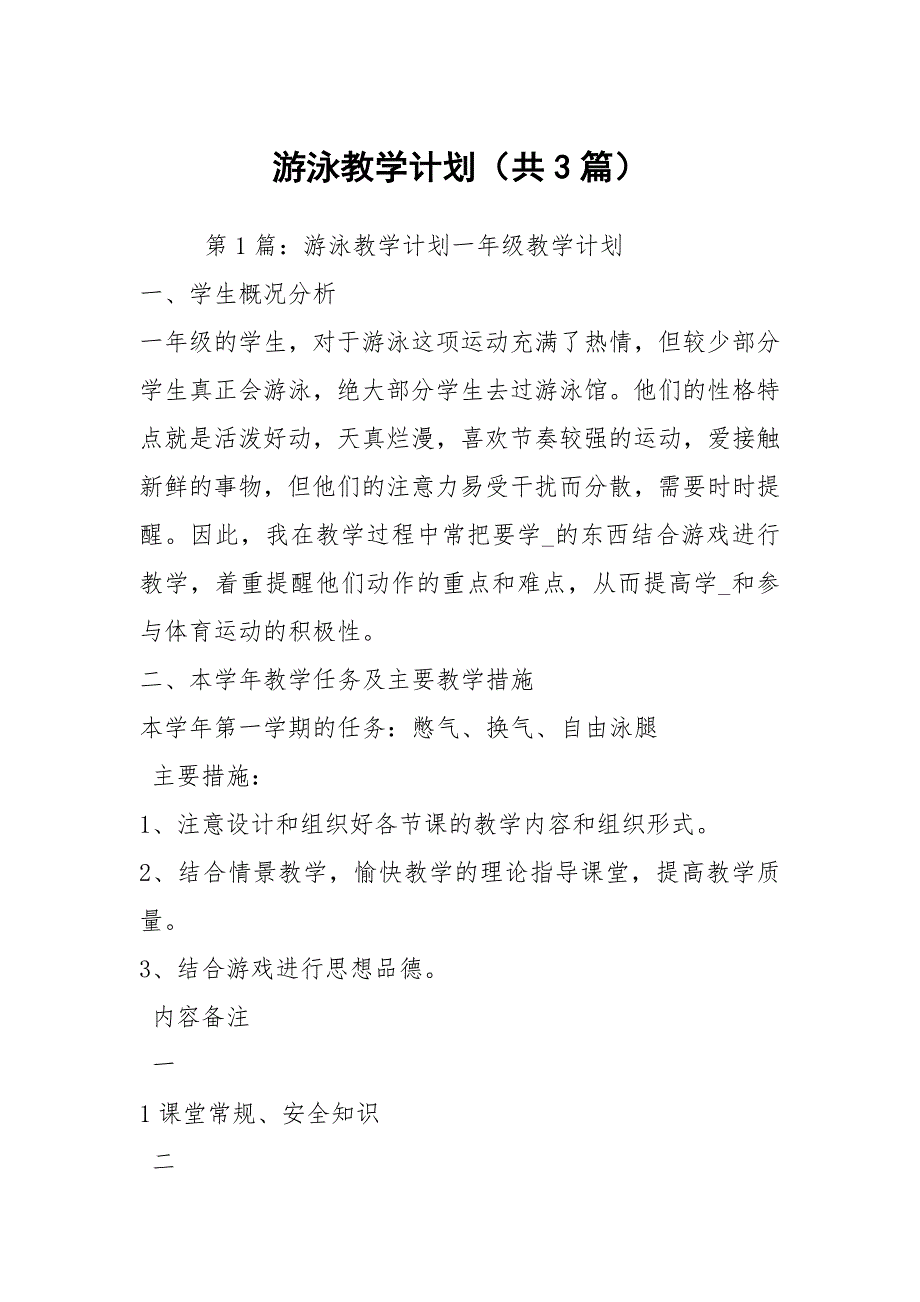 游泳教学计划（共 3 篇）
第 1 篇：游泳教学计划一年级教学计划
一、学生概况分析
一年级的学生，对于游泳这项运动充满了热情，但较少部分
学生真正会游泳，绝大部分学生去过游泳馆。他们的性格特
点就是活泼好动，天真烂漫，喜欢节奏较强的运动，爱接触
新鲜的事物，但他们的注意力易受干扰而分散，需要时时提
醒。因此，我在教学过程中常把要学_的东西结合游戏进行
教学，着重提醒他们动作的重点和难点，从而提高学_和参
与体育运动的积极性。
二、本学年教学任务及主要教学措施
本学年第一学期的任务：憋气、换气、自由泳腿
主要措施：
1、注意设计和组织好各节课的教学内容和组织形式。
2、结合情景教学，愉快教学的理论指导课堂，提高教学质
量。
3、结合游戏进行思想品德。
内容备注
一
1 课堂常规、安全知识
二